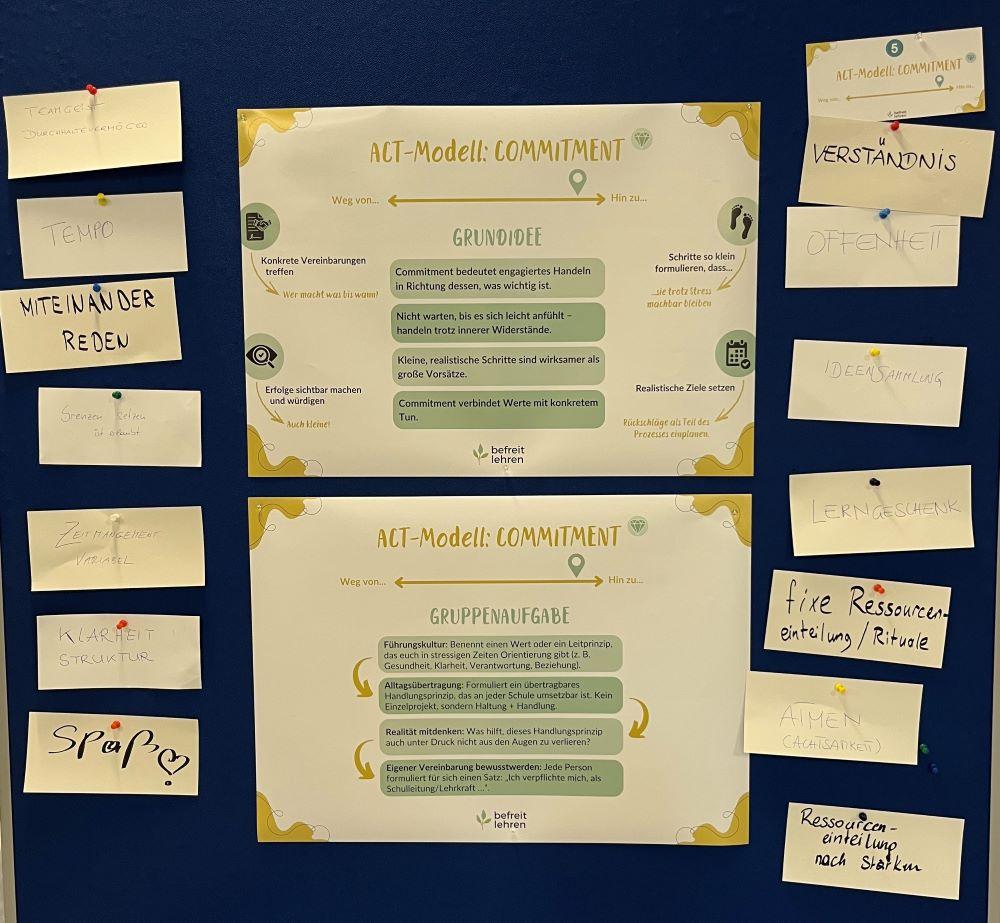 TEAMGEIST
DURCHHALTEVERMÖGEN
TEMPO
MITEINANDER
REDEN
Grenzen setzen
ist erlaubt
ZEITMANGEMENT
VARIABEL
KLARHEIT
STRUKTUR
SPaß
ACT-Modell: COMMITMENT
Weg von... Hin zu...
GRUNDIDEE
Konkrete Vereinbarungen
treffen
Wer macht was bis wann?
Erfolge sichtbar machen
und würdigen
Auch kleine!
Commitment bedeutet engagiertes Handeln
in Richtung dessen, was wichtig ist.
Nicht warten, bis es sich leicht anfühlt –
handeln trotz innerer Widerstände.
Kleine, realistische Schritte sind wirksamer als
große Vorsätze.
Commitment verbindet Werte mit konkretem
Tun.
Schritte so klein
formulieren, dass...
...sie trotz Stress
machbar bleiben
Realistische Ziele setzen
Rückschläge als Teil des
Prozesses einplanen.
befreit
lehren
ACT-Modell: COMMITMENT
Weg von... Hin zu...
GRUPPENAUFGABE
Führungskultur: Benennt einen Wert oder ein Leitprinzip,
das euch in stressigen Zeiten Orientierung gibt (z. B.
Gesundheit, Klarheit, Verantwortung, Beziehung).
Alltagsübertragung: Formuliert ein übertragbares
Handlungsprinzip, das an jeder Schule umsetzbar ist. Kein
Einzelprojekt, sondern Haltung + Handlung.
Realität mitdenken: Was hilft, dieses Handlungsprinzip
auch unter Druck nicht aus den Augen zu verlieren?
Eigener Vereinbarung bewusstwerden: Jede Person
formuliert für sich einen Satz: „Ich verpflichte mich, als
Schulleitung/Lehrkraft ...".
befreit
lehren
5
ACT-Modell: COMMITMENT
Weg von... Hin zu...
befreit
lehren
VERSTÄNDNIS
ü
OFFENHEIT
IDEENSAMMLUNG
LERNGESCHENK
fixe Ressourcen-
einteilung/Rituale
ATMEN
(ACHTSAMKEIT)
Ressourcen-
einteilung
nach Stärken